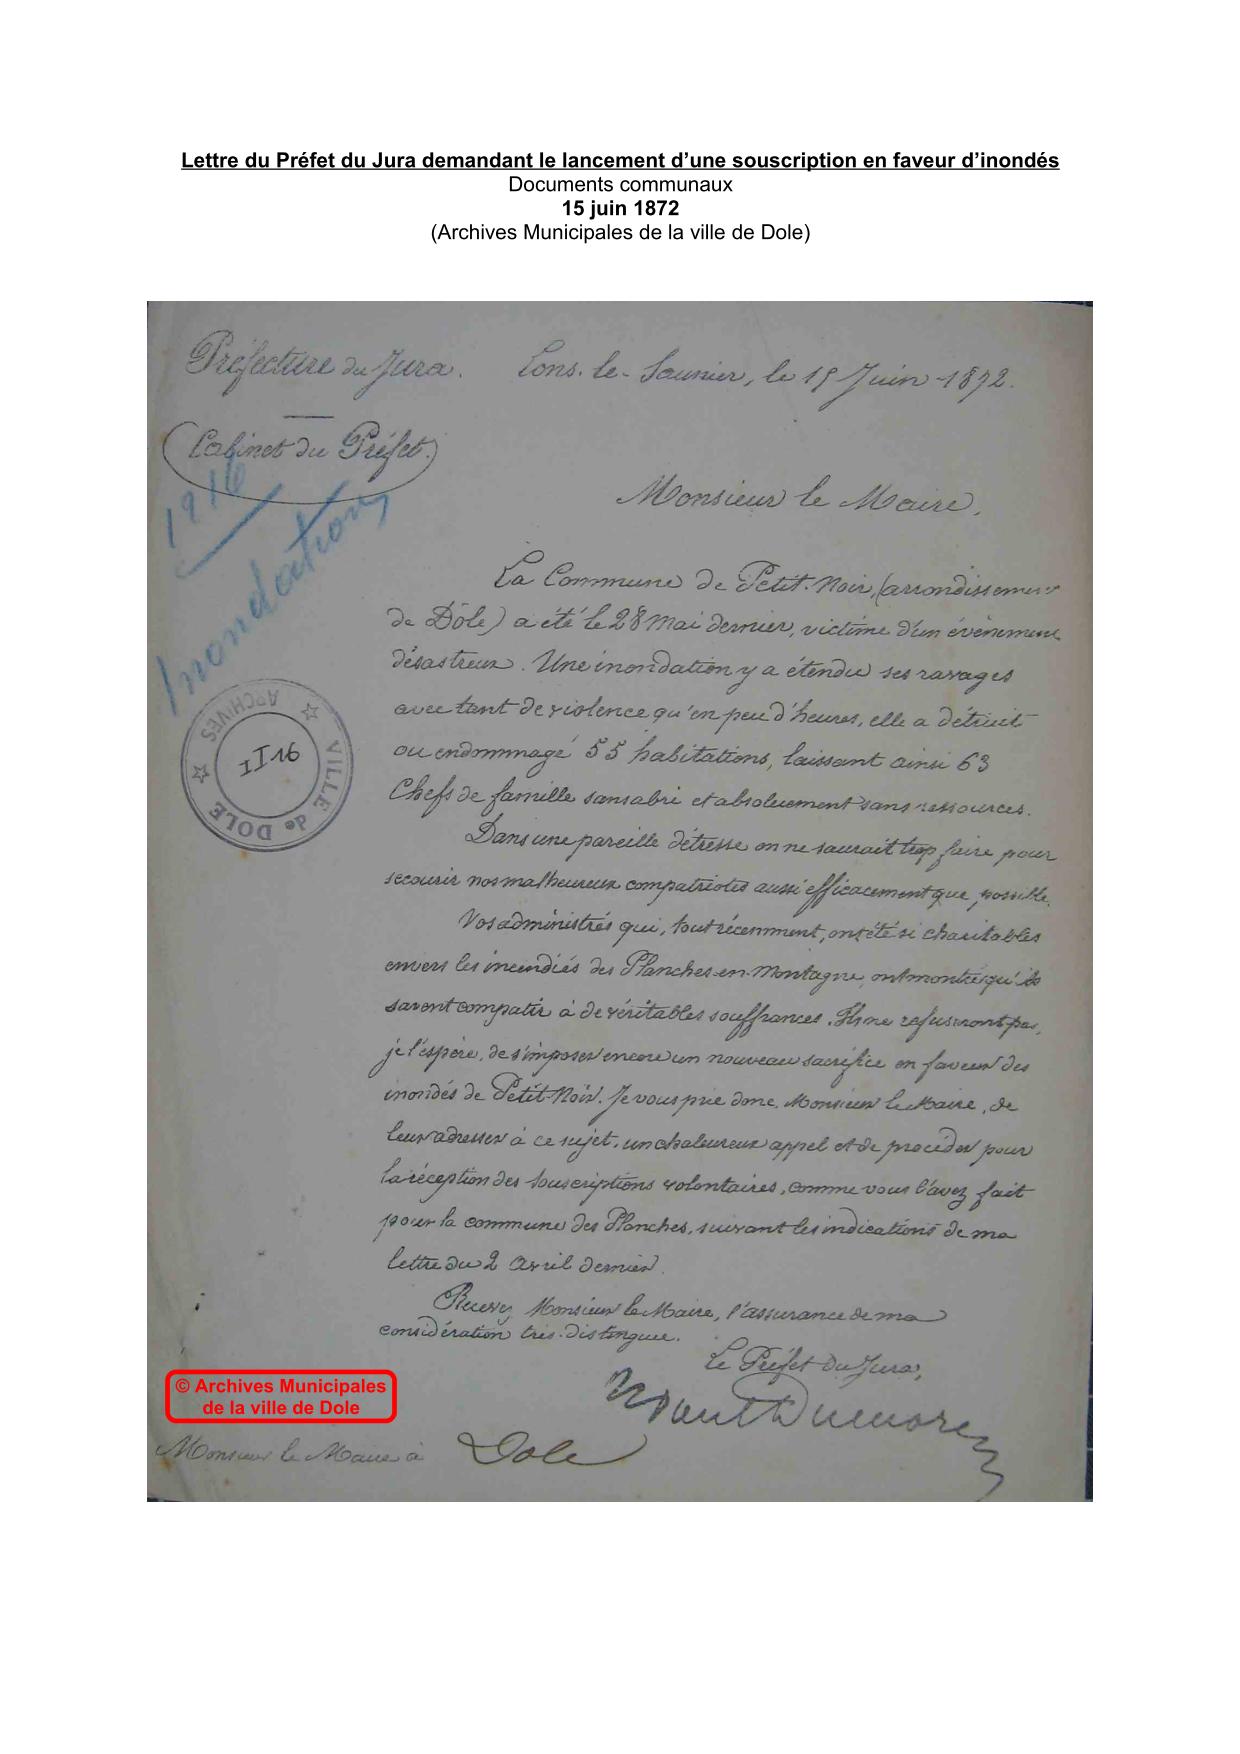 Lettre du Préfet du Jura demandant le lancement d'une souscription en faveur d'inondés
Documents communaux
15 juin 1872
(Archives Municipales de la ville de Dole)
Préfecture du Jura. Lons-le-Saunier, le 15 Juin 1872.
Cabinet du Préfet.
Inondation
Monsieur le Maire,
La Commune de Petit-Noir, (arrondissement
de Dôle) a été le 28 Mai dernier, victime d'un évènement
désastreux. Une inondation y a étendu ses ravages
avec tant de violence qu'en peu d'heures, elle a détruit
ou endommagé 55 habitations, laissant ainsi 63
Chefs de famille sans abri et absolument sans ressources.
VILLE de DOLE ☆ ARCHIVES ☆
1I16
Dans une pareille détresse on ne saurait trop faire pour
secourir nos malheureux compatriotes aussi efficacement que possible.
Vos administrés qui, tout récemment, ont été si charitables
envers les incendiés des Planches-en-Montagne, ont montré qu'ils
savent compatir à de véritables souffrances. Ils ne refuseront pas,
je l'espère, de s'imposer encore un nouveau sacrifice en faveur des
inondés de Petit-Noir. Je vous prie donc, Monsieur le Maire, de
leur adresser à ce sujet, un chaleureux appel et de procéder pour
la réception des souscriptions volontaires, comme vous l'avez fait
pour la commune des Planches, suivant les indications de ma
lettre du 2 Avril dernier.
Recevez, Monsieur le Maire, l'assurance de ma
considération très-distinguée.
Le Préfet du Jura,
© Archives Municipales
de la ville de Dole
Monsieur le Maire à Dole